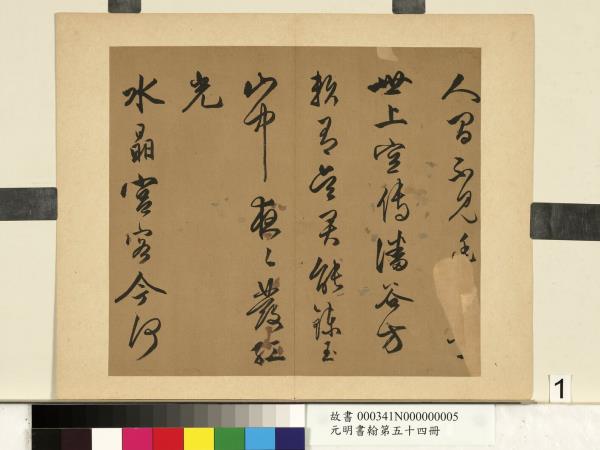 人間不見
世上空傳潘谷方
能鍊玉
山中夜々發紅
光
水晶宮客今何
1
故書 000341N000000005
元明書翰第五十四冊